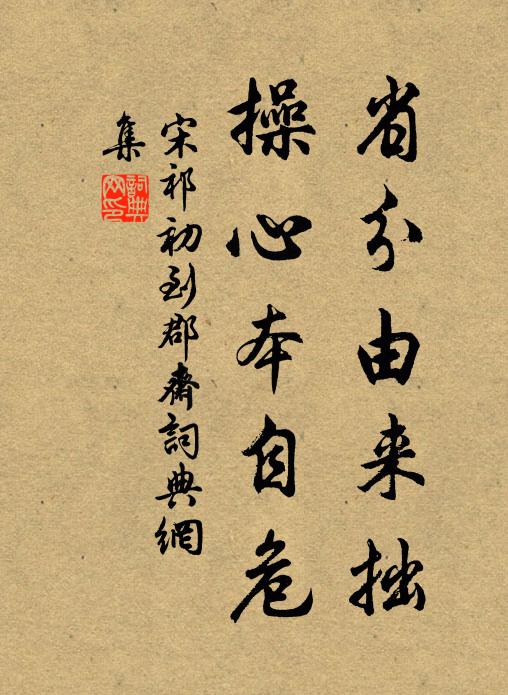 省分由来拙
操心本自危
宋祁初到郡齋詞典網
集
詞典網印